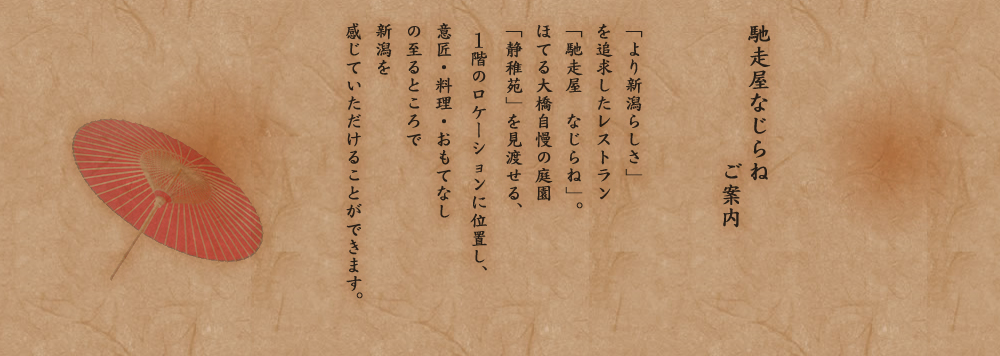 馳走屋なじらね
ご案内
「より新潟らしさ」
を追求したレストラン
「馳走屋　なじらね」。
ほてる大橋自慢の庭園
「静稚苑」を見渡せる、
1階のロケーションに位置し、
意匠・料理・おもてなし
の至るところで
新潟を
感じていただけることができます。